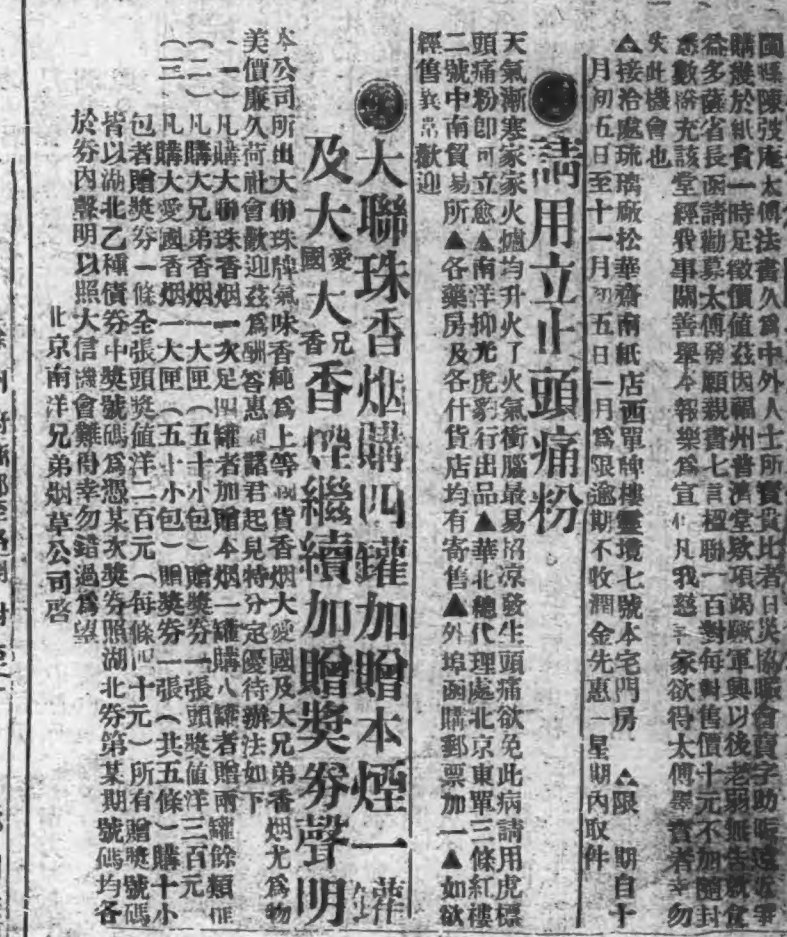 閩縣陳弢庵太傅法書久爲中外人士所寶貴比者日災協賑會賣字助賑遠近爭
購幾於紙貴一時足徵價値茲因福州普濟堂欵項竭蹶軍興以後老弱無告就食
益多薩省長函請勸募太傅發願親書七言楹聯一百對每對售價十元不加隨封
悉數撥充該堂經費事關善舉本報樂爲宣 凡我慈 家欲得太傅墨寶者幸勿
失此機會也
▲接洽處琉璃廠松華齋南紙店西單牌樓靈境七號本宅門房 ▲限 期自十
月初五日至十一月初五日一月爲限逾期不收潤金先惠一星期內取件
請用立止頭痛粉
天氣漸寒家家火爐均升火了火氣衝腦最易招凉發生頭痛欲免此病請用虎標
頭痛粉卽可立愈▲南洋抑光虎豹行出品▲華北總代理處北京東單三條紅樓
二號中南貿易所▲各藥房及各什貨店均有寄售▲外埠函購郵票加一▲如欲
經售異常歡迎
大聯珠香烟購四罐加贈本煙一罐
及大愛國大兄香香煙繼續加贈獎劵聲明
本公司所出大聯珠牌氣味香純爲上等國貨香烟大愛國及大兄弟香烟尤爲物
美價廉久荷社會歡迎茲爲酬答惠顧諸君起見特分定優待辦法如下
(一)凡購大聯珠香烟一次足四罐者加贈本烟一罐購八罐者贈兩罐餘類推
(二)凡購大兄弟香烟一大匣(五十小包)贈獎劵一張頭獎值洋三百元
(三)凡購大愛國香烟一大匣(五十小包)贈獎劵一張(共五條)購十小
包者贈獎劵一條全張頭獎值洋二百元(每條四十元)所有贈獎號碼
皆以湖北乙種債劵中獎號碼爲憑某次獎劵照湖北劵第某期號碼均各
於劵內聲明以照大信機會難得幸勿錯過爲望
北京南洋兄弟烟草公司啓